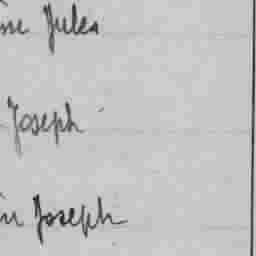 Jules
Joseph
Joseph